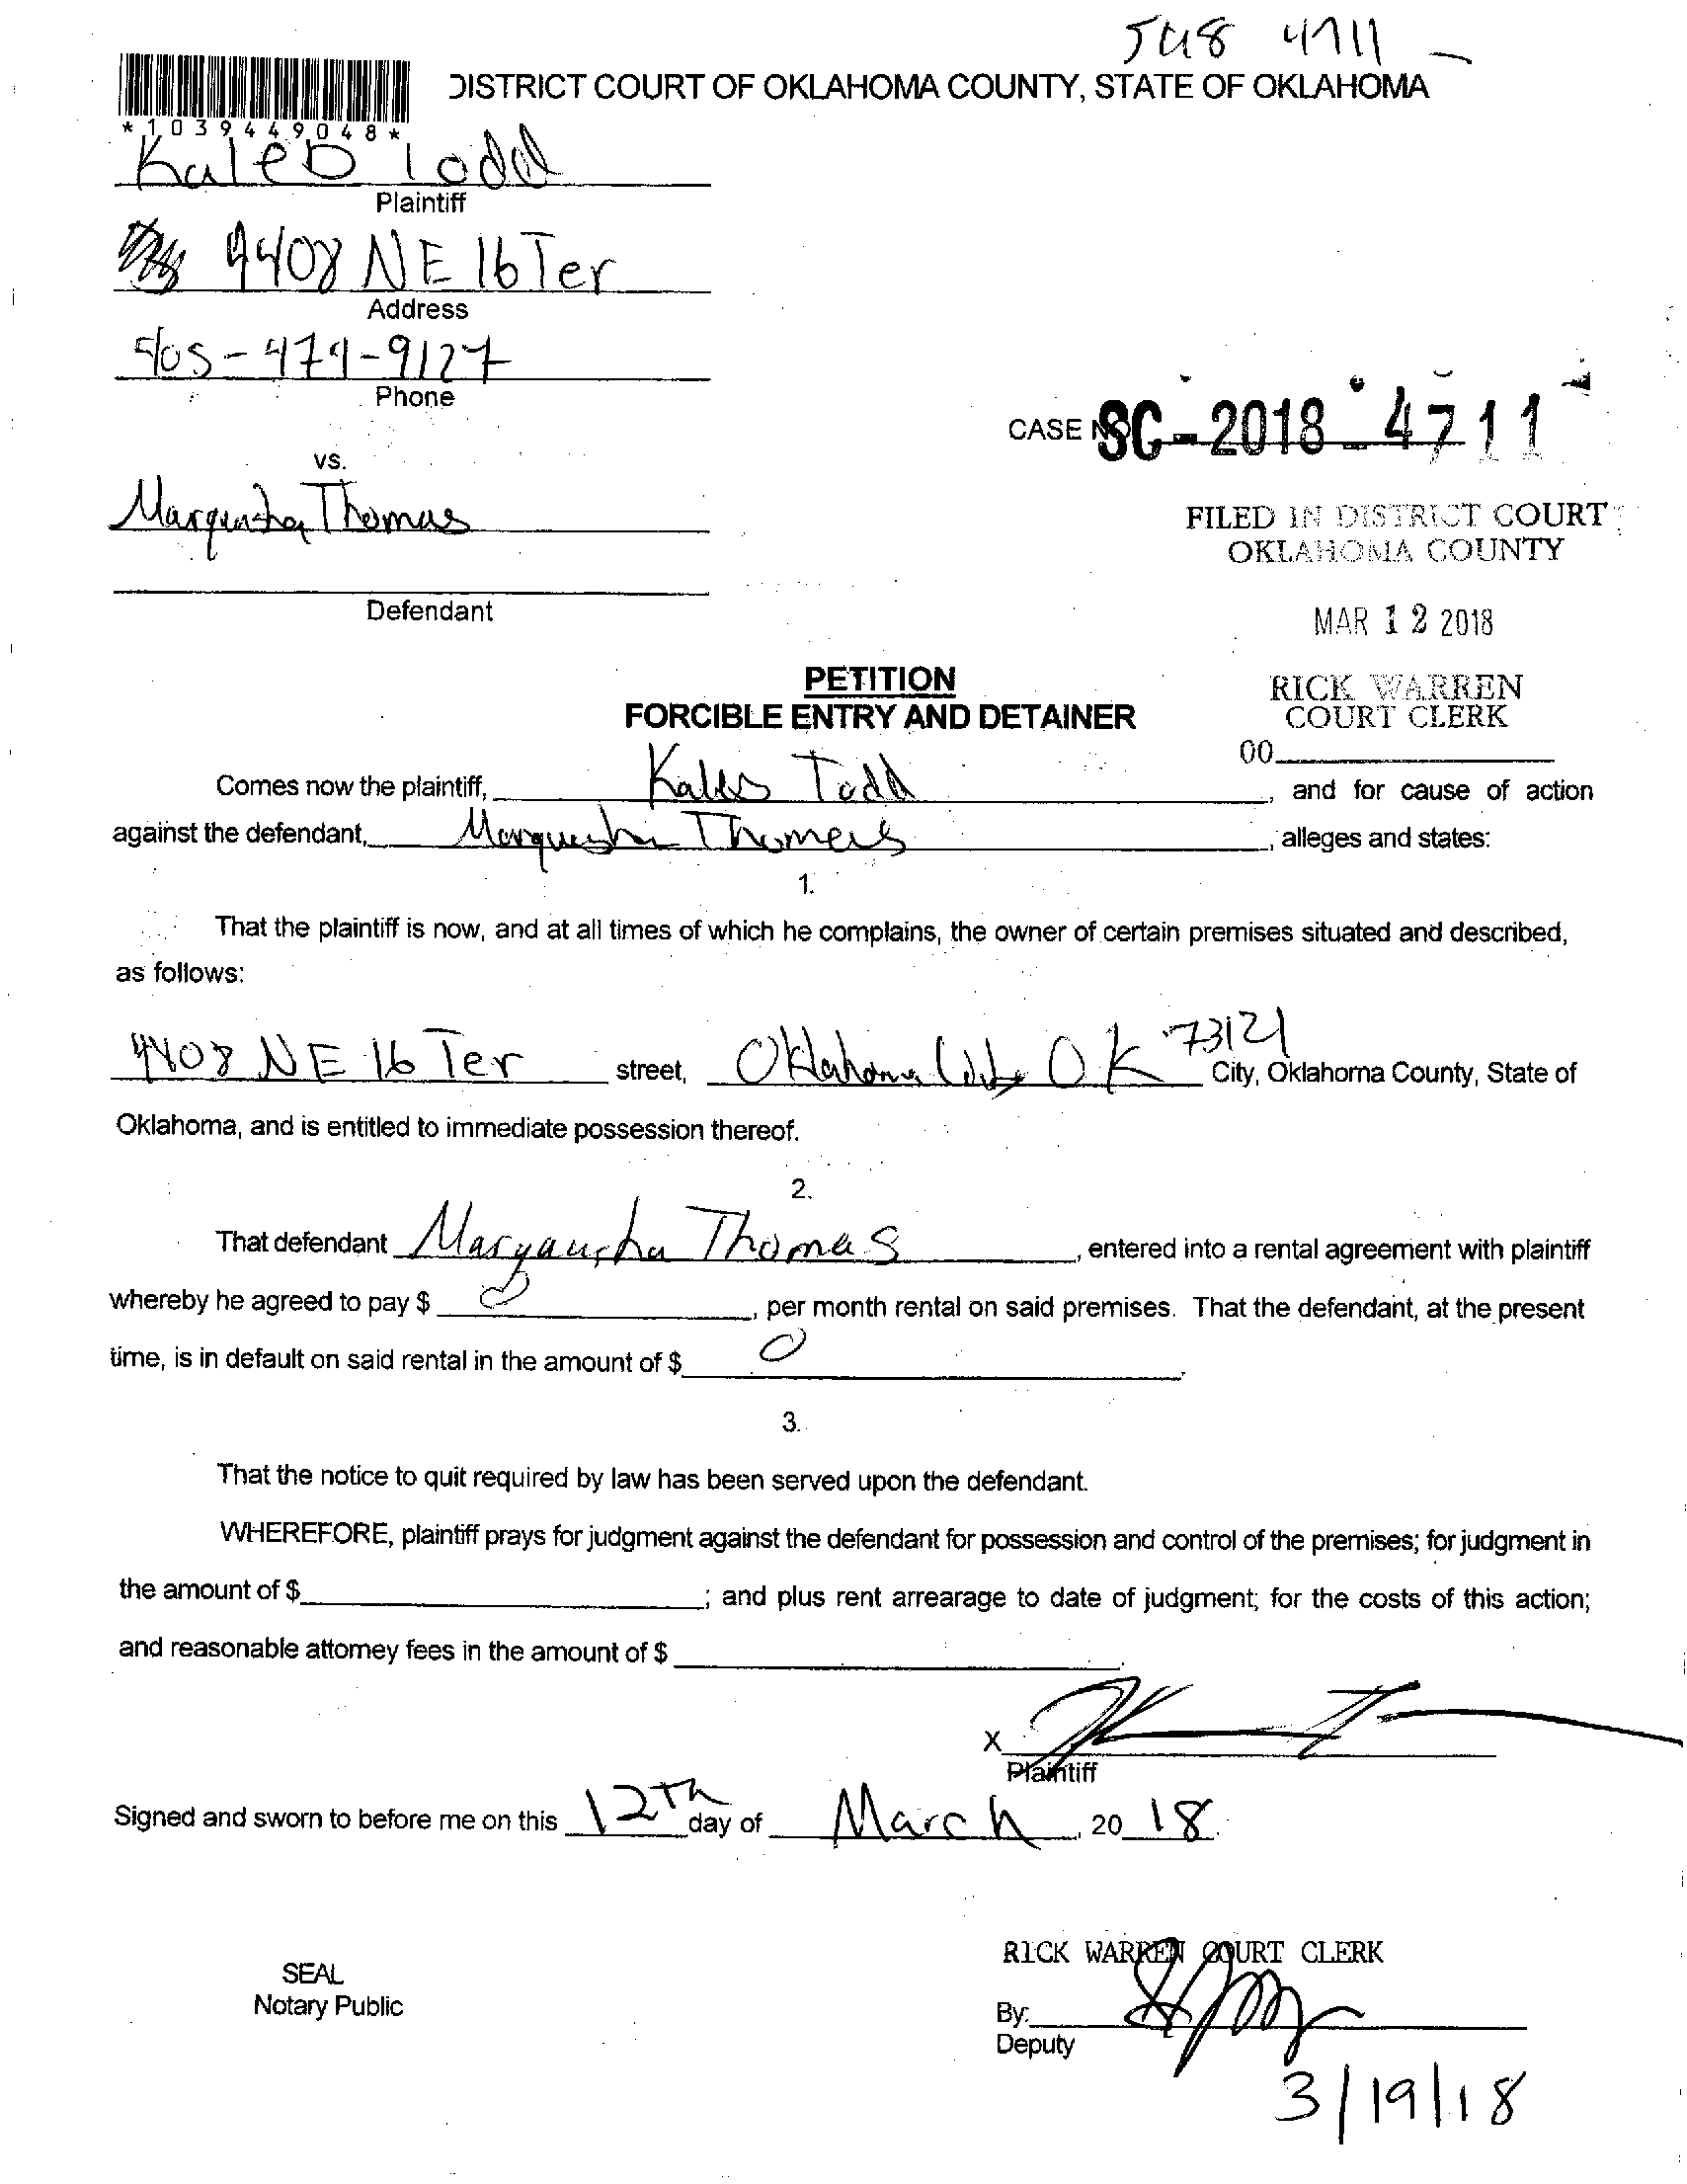 4711
DISTRICT COURT OF OKLAHOMA COUNTY, STATE OF OKLAHOMA
*1039449048*
Kaleb Todd
Plaintiff
4408 NE 16 Ter
Address
405-474-9127
Phone
CASE NO. SC-2018-4711
vs.
Thomas
FILED IN DISTRICT COURT
OKLAHOMA COUNTY
Defendant
MAR 12 2018
PETITION
RICK WARREN
FORCIBLE ENTRY AND DETAINER
COURT CLERK
00
Comes now the plaintiff, Kaleb Todd, and for cause of action
against the defendant, Thomas, alleges and states:
1.
That the plaintiff is now, and at all times of which he complains, the owner of certain premises situated and described,
as follows:
4408 NE 16 Ter street, Oklahoma City OK 73121 City, Oklahoma County, State of
Oklahoma, and is entitled to immediate possession thereof.
2.
That defendant Thomas, entered into a rental agreement with plaintiff
whereby he agreed to pay $ 0, per month rental on said premises. That the defendant, at the present
time, is in default on said rental in the amount of $ 0.
3.
That the notice to quit required by law has been served upon the defendant.
WHEREFORE, plaintiff prays for judgment against the defendant for possession and control of the premises; for judgment in
the amount of $ ; and plus rent arrearage to date of judgment; for the costs of this action;
and reasonable attorney fees in the amount of $ .
X
Plaintiff
Signed and sworn to before me on this 12th day of March, 2018.
RICK WARREN COURT CLERK
SEAL
Notary Public
By:
Deputy
3/19/18